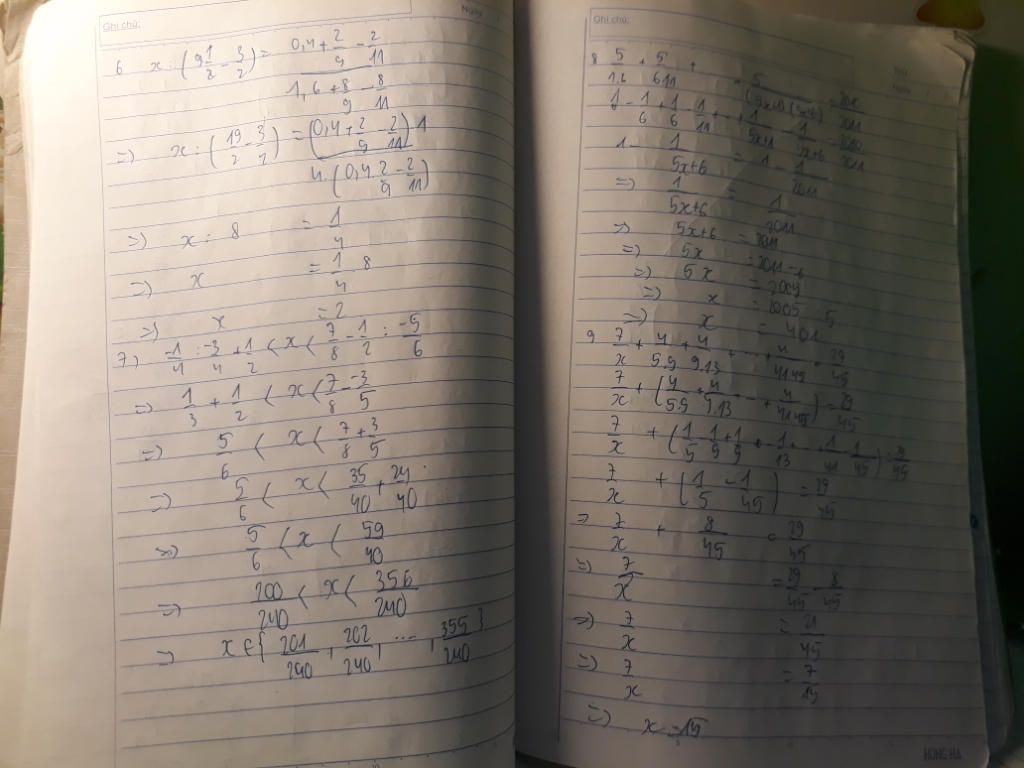 Ghi chú:
Ngày
6 x : (9 1/2 - 3/2) = (0,4 + 2/9 - 2/11) / (1,6 + 8/9 - 8/11)
=) x : (19/2 - 3/2) = (0,4 + 2/9 - 2/11) 1 / 4.(0,4 2/9 - 2/11)
=) x : 8 = 1/4
=) x = 1/4 . 8
=) x = 2
7) -1/4 : -3/4 + 1/2 < x < 7/8 - 1/2 : -5/6
=) 1/3 + 1/2 < x < 7/8 - -3/5
=) 5/6 < x < 7/8 + 3/5
=) 5/6 < x < 35/40 + 24/40
=) 5/6 < x < 59/40
=) 200/240 < x < 356/240
=) x ∈ { 201/240 , 202/240 , ... , 355/240 }
Ghi chú:
Ngày
8 5/1.6 + 5/6.11 + - 5/(5x+1)(5x+6) = 2010/2011
1 - 1/6 + 1/6 - 1/11 + + 1/5x+1 - 1/5x+6 = 2010/2011
1 - 1/5x+6 = 1 - 1/2011
=) 1/5x+6 = 1/2011
=) 5x+6 = 2011
=) 5x = 2011 - 6
=) 5x = 2005
=) x = 2005 : 5
=) x = 401
9 7/x + 4/5.9 + 4/9.13 + ... + 4/41.45 = 29/45
7/x + (4/5.9 + 4/9.13 + ... + 4/41.45) = 29/45
7/x + (1/5 - 1/9 + 1/9 - 1/13 + ... + 1/41 - 1/45) = 29/45
7/x + (1/5 - 1/45) = 29/45
=) 7/x + 8/45 = 29/45
=) 7/x = 29/45 - 8/45
=) 7/x = 21/45
=) 7/x = 7/15
=) x = 15
HONG HA